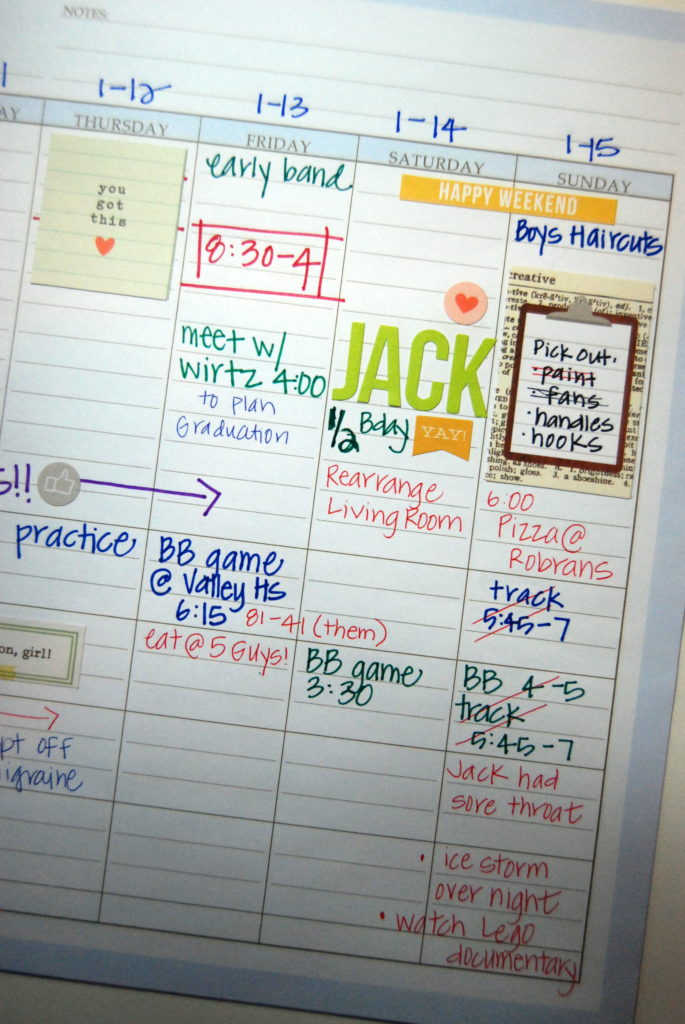 NOTES:
1
1-12
1-13
1-14
1-15
AY
THURSDAY
FRIDAY
SATURDAY
SUNDAY
you
got
this
5!!
practice
on, girl!
pt off
igraine
early band
8:30-4
meet w/
Wirtz 4:00
to plan
Graduation
BB game
@ Valley HS
6:15 81-41 (them)
eat @ 5 Guys!
HAPPY WEEKEND
JACK
1/2 Bday
YAY!
Rearrange
Living Room
BB game
3:30
Boys Haircuts
creative
Pick out:
·paint
·fans
·handles
·hooks
6:00
Pizza @
Robrans
track
5:45-7
BB 4-5
track
5:45-7
Jack had
sore throat
• ice storm
over night
• watch Lego
documentary